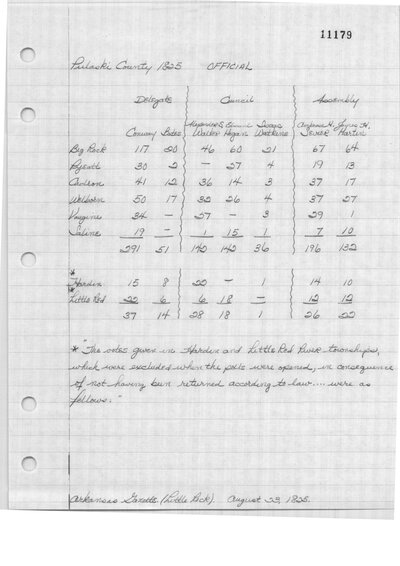 11179
Pulaski County 1825 OFFICIAL
Delegate Council Assembly
Alexander S. Edmund Isaac Ambrose H. James H.
Conway Bates Walker Hogan Watkins Sevier Martin
Big Rock 117 20 46 60 21 67 64
Pyeatt 30 2 — 27 4 19 13
Cadron 41 12 36 14 3 37 17
Welborn 50 17 32 26 4 37 27
Vaugine 34 — 27 — 3 29 1
Saline 19 — 1 15 1 7 10
291 51 142 142 36 196 132
*
Hardin 15 8 22 — 1 14 10
*
Little Red 22 6 6 18 — 12 12
37 14 28 18 1 26 22
* "The votes given in Hardin and Little Red River townships,
which were excluded when the polls were opened, in consequence
of not having been returned according to law.... were as
follows:"
Arkansas Gazette (Little Rock). August 23, 1825.